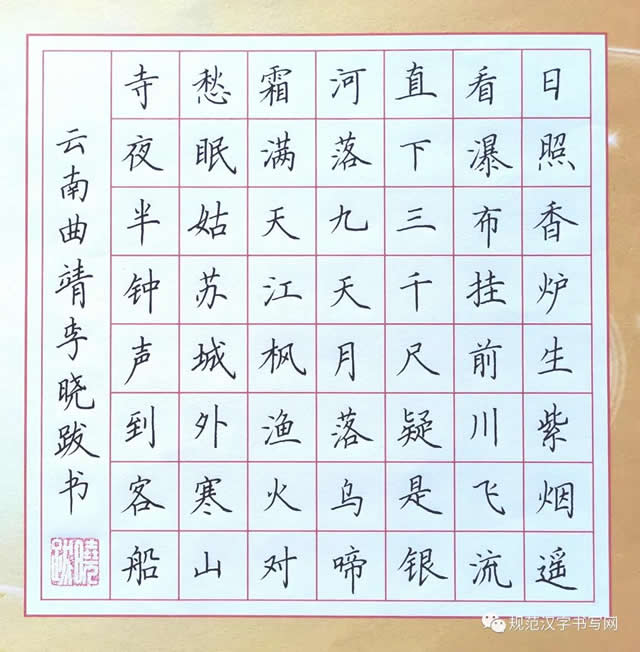 日照香炉生紫烟遥
看瀑布挂前川飞流
直下三千尺疑是银
河落九天月落乌啼
霜满天江枫渔火对
愁眠姑苏城外寒山
寺夜半钟声到客船
云南曲靖李晓跋书
规范汉字书写网